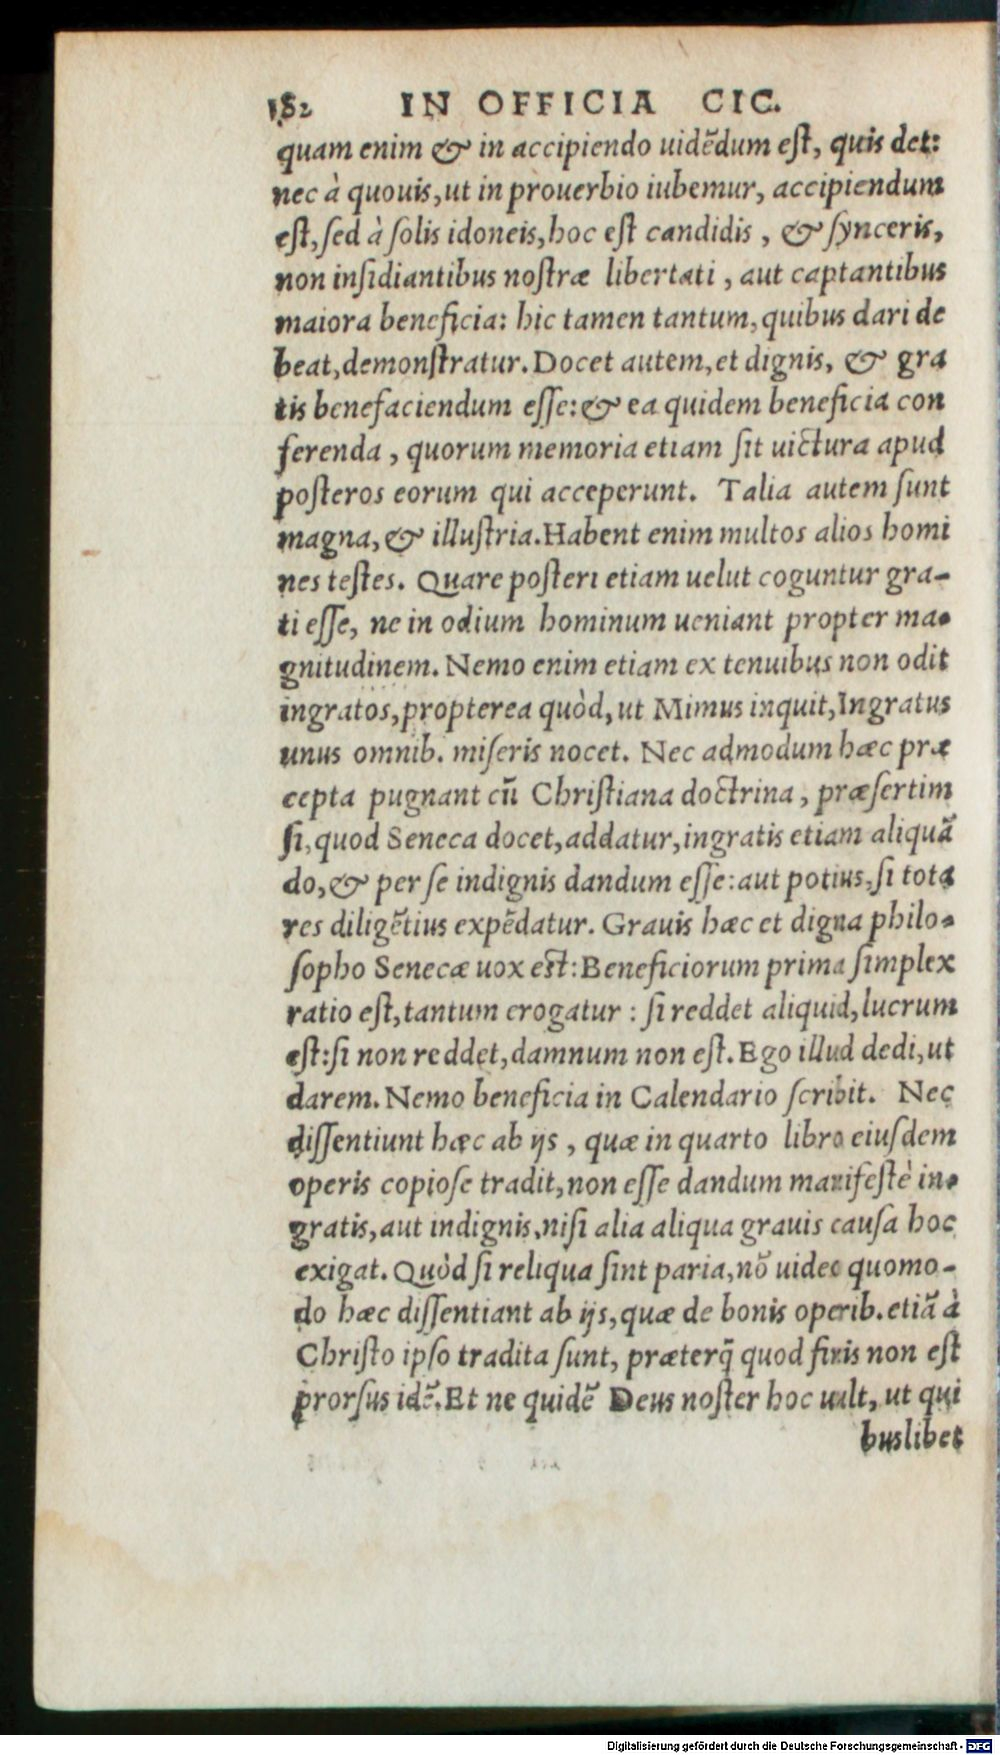 182 IN OFFICIA CIC.
quam enim & in accipiendo uidẽdum eſt, quis det:
nec à quouis, ut in prouerbio iubemur, accipiendum
eſt, ſed à ſolis idoneis, hoc eſt candidis, & ſynceris,
non inſidiantibus noſtræ libertati, aut captantibus
maiora beneficia: hic tamen tantum, quibus dari de
beat, demonſtratur. Docet autem, et dignis, & gra
tis benefaciendum eſſe: & ea quidem beneficia con
ferenda, quorum memoria etiam ſit uictura apud
poſteros eorum qui acceperunt. Talia autem ſunt
magna, & illuſtria. Habent enim multos alios homi
nes teſtes. Quare poſteri etiam uelut coguntur gra-
ti eſſe, ne in odium hominum ueniant propter ma-
gnitudinem. Nemo enim etiam ex tenuibus non odit
ingratos, propterea quòd, ut Mimus inquit, Ingratus
unus omnib. miſeris nocet. Nec admodum hæc præ
cepta pugnant cũ Chriſtiana doctrina, præſertim
ſi, quod Seneca docet, addatur, ingratis etiam aliquã
do, & per ſe indignis dandum eſſe: aut potius, ſi tota
res diligẽtius expẽdatur. Grauis hæc et digna philo-
ſopho Senecæ uox eſt: Beneficiorum prima ſimplex
ratio eſt, tantum erogatur : ſi reddet aliquid, lucrum
eſt: ſi non reddet, damnum non eſt. Ego illud dedi, ut
darem. Nemo beneficia in Calendario ſcribit. Nec
diſſentiunt hæc ab ijs, quæ in quarto libro eiuſdem
operis copioſe tradit, non eſſe dandum manifeſtè in-
gratis, aut indignis, niſi alia aliqua grauis cauſa hoc
exigat. Quòd ſi reliqua ſint paria, nõ uideo quomo-
do hæc diſſentiant ab ijs, quæ de bonis operib. etiã à
Chriſto ipſo tradita ſunt, præterq̃ quod finis non eſt
prorſus idẽ. Et ne quidẽ Deus noſter hoc uult, ut qui
buslibet
Digitalisierung gefördert durch die Deutsche Forschungsgemeinschaft - DFG